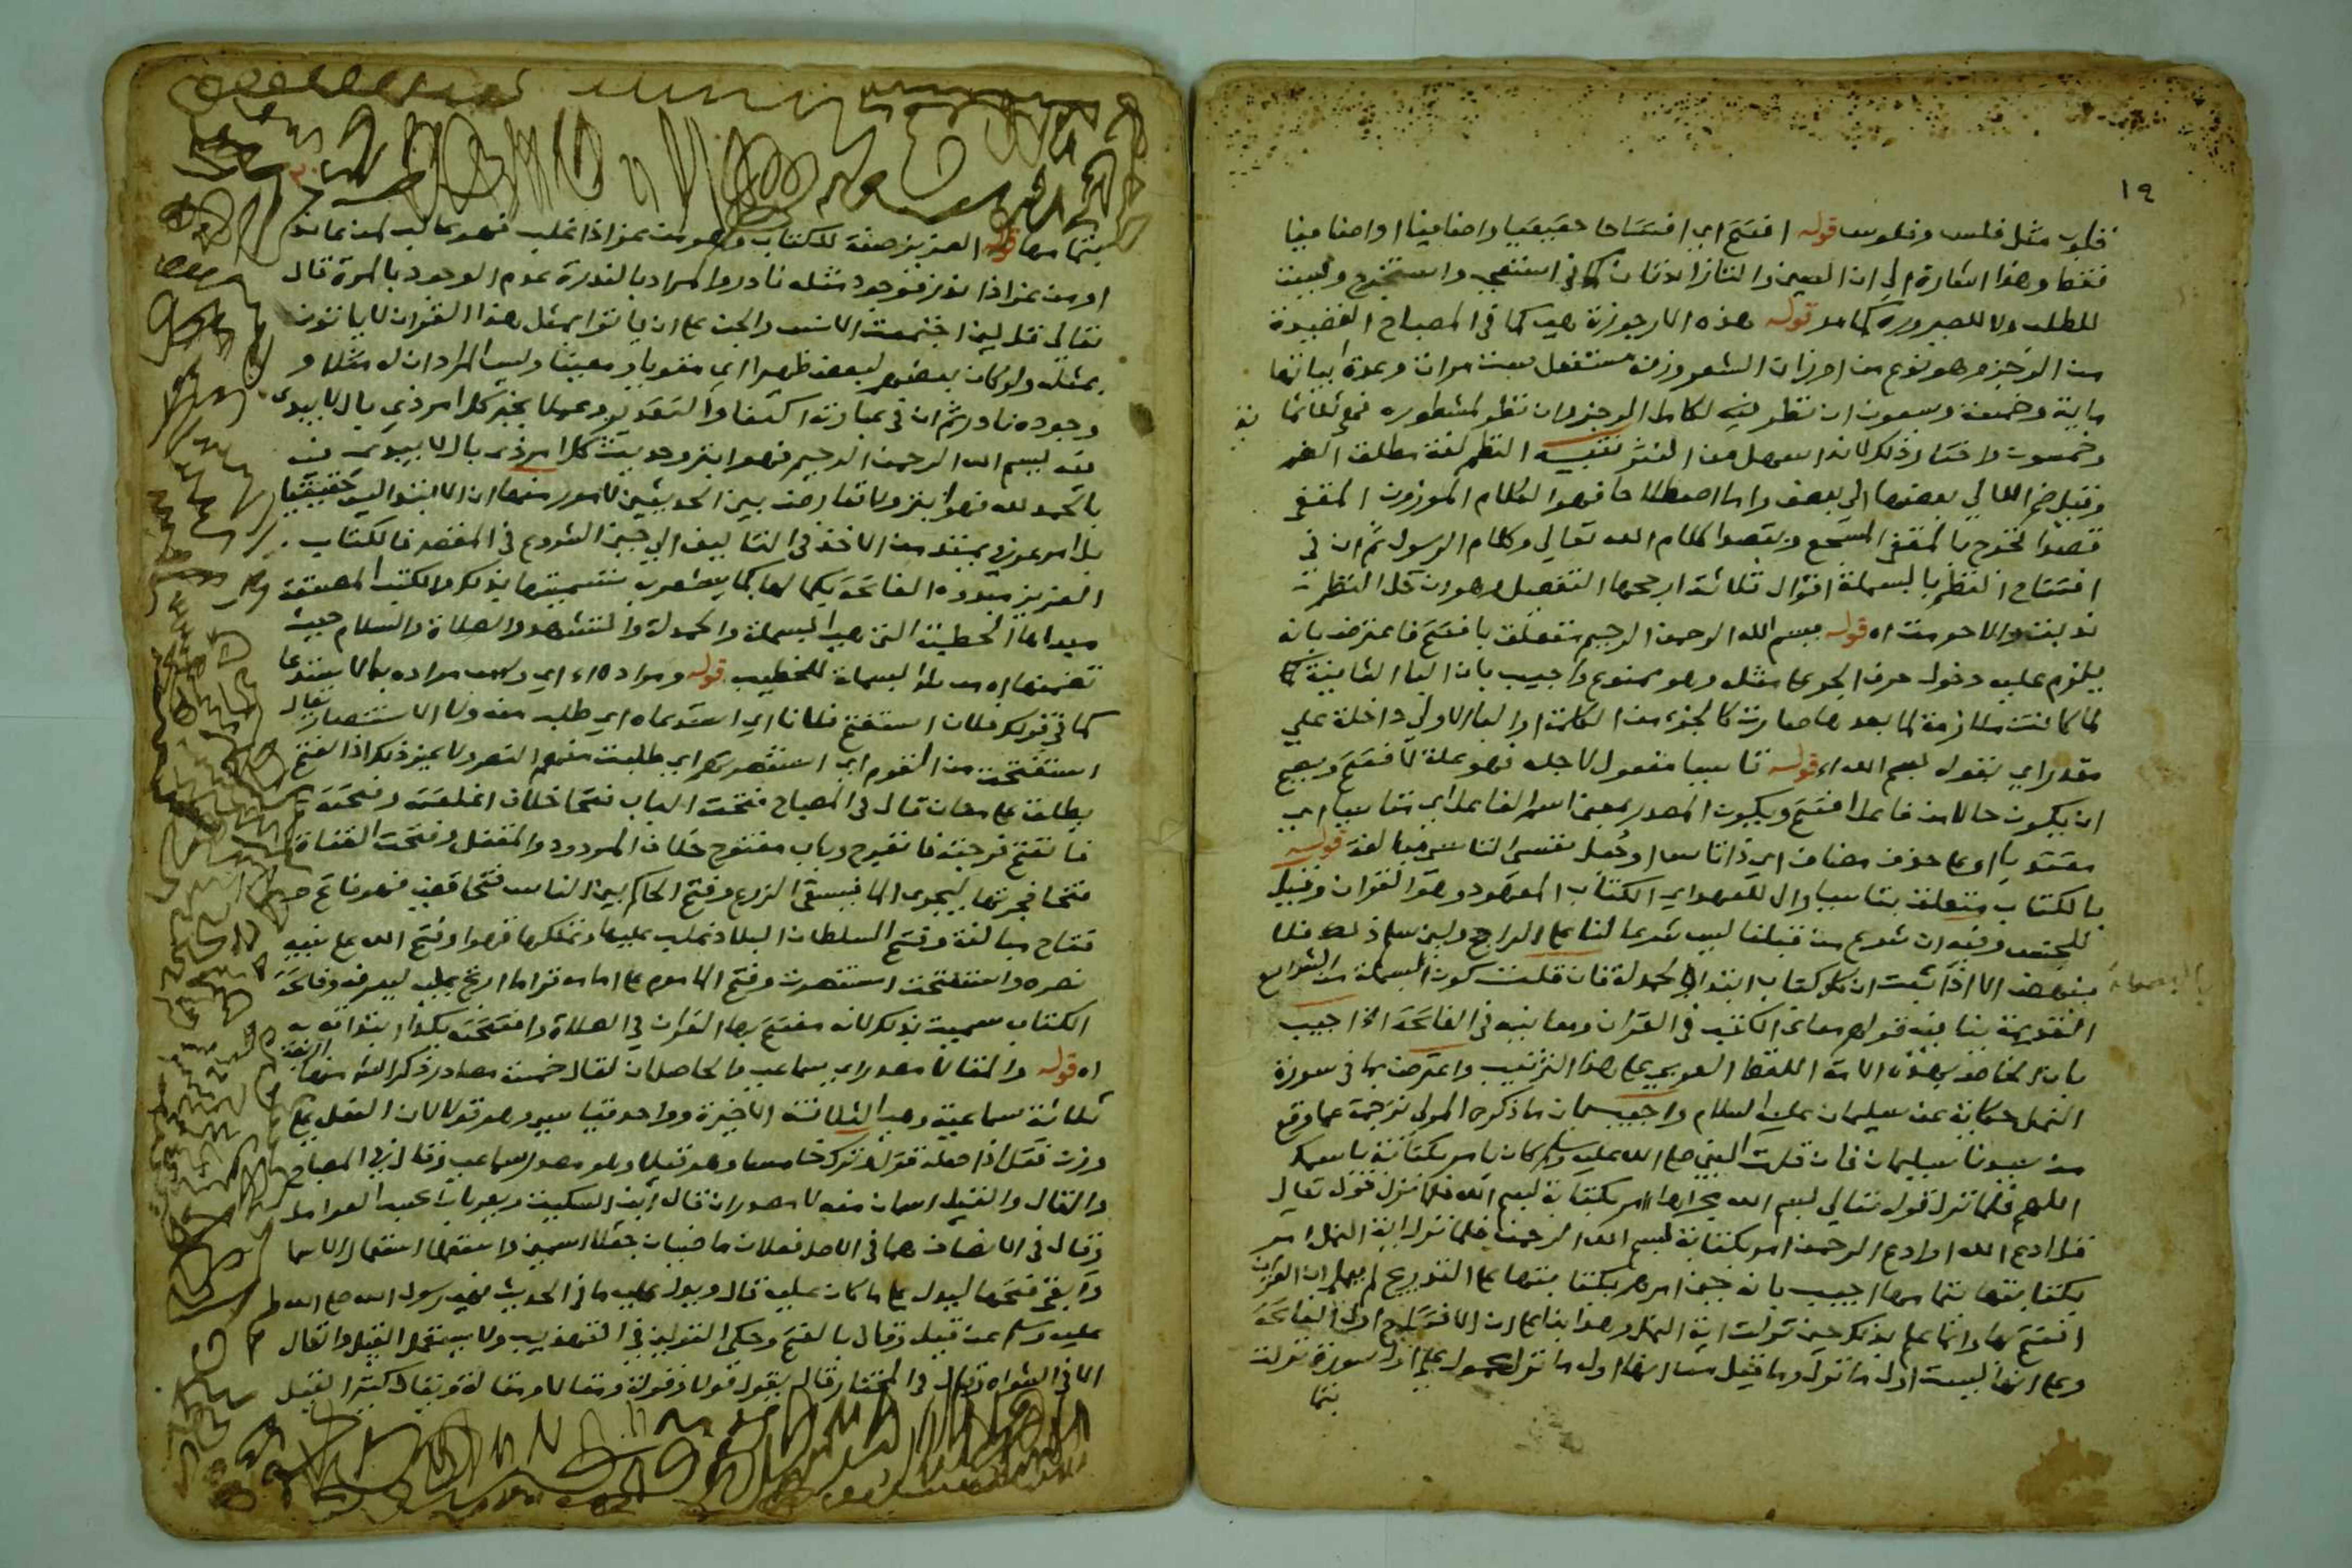 ١٩
فلوب مثل فلس وفلوس قوله افتتح اي افتتاحا حقيقيا واضافيا او اضافيا
فقط وهذا اشارة الى ان العين والتا زائدتان كما في استفتى واستخرج وليست
للطلب ولا للصيرورة كما مر قوله هذه الارجوزة هي كما في المصباح القصيدة
من الرجز وهو نوع من اوزان الشعر وزنه مستفعل ست مرات وعدة ابياتها
ماية وخمسة وسبعون ان نظر فيه لكامل الرجز وان نظر لمشطوره فهي ثلاثمائة
وخمسون واختار ذلك لانه اسهل من النثر تنبيه النظم لغة مطلق الضم
وقيل ضم اللآلي بعضها الى بعض واما اصطلاحا فهو الكلام الموزون المقفى
قصدا فخرج بالمقفى المسجع وبقصدا كلام الله تعالى وكلام الرسول ثم ان في
افتتاح النظم بالبسملة اقوال ثلاثة ارجحها التفصيل وهو ان كان النظم
قوله بسم الله الرحمن الرحيم متعلق بافتتح فاعترض بانه
يلزم عليه دخول حرف الجر على مثله وهو ممنوع واجيب بان البا الثانية
لما كانت ملازمة لما بعدها صارت كالجزء من الكلمة او البا الاولى داخلة على
مقدر اي بقول بسم الله اه قوله تاسيا مفعول لاجله فهو علة لافتتح ويصح
ان يكون حالا من فاعل افتتح ويكون المصدر بمعنى اسم الفاعل اي متاسيا اي
مقتديا او على حذف مضاف اي ذا تاس او جعل نفس التاسي مبالغة قوله
بالكتاب متعلق بتاسيا وال للعهد اي الكتاب المعهود وهو القران وقيل
للجنس وفيه ان شرع من قبلنا ليس شرعا لنا على الراجح ولين سلم ذلك فلا
ينهض الا اذا ثبت ان كل كتاب ابتدا بالحمدلة فان قلت كون البسملة من الشرايع
القديمة ينافيه قولهم معاني الكتب في القران ومعانيه في الفاتحة الخ اجيب
بان الخاص بهذه الامة اللفظ العربي على هذا الترتيب واعترض بما في سورة
النمل حكاية عن سليمان عليه السلام واجيب بان ما ذكره المولى ترجمة عما وقع
من سيدنا سليمان فان قلت النبي صلى الله عليه وسلم كان يامر بكتابة باسمك
اللهم فلما نزل قوله تعالى بسم الله مجراها امر بكتابة بسم الله فلما نزل قوله تعالى
قل ادعوا الله او ادعوا الرحمن امر بكتابة بسم الله الرحمن فلما نزل اية النمل امر
بكتابتها بتمامها اجيب بانه حين امرهم بكتابتها على التدريج لم يعلم ان القران
افتتح بها وانما علم بذلك حين نزلت اية النمل وهذا بنا على ان الافتتاح اول الفاتحة
وعلى انها ليست اول ما نزل وما قيل من انها اول ما نزل محمول على اول سورة نزلت
بتما
بتمامها قوله العزيز صفة للكتاب وهو من عز اذا غلب فهو غالب لمن عانده
او من عز اذا ندر فوجود مثله نادر والمراد بالندرة عدم الوجود بالمرة قال
تعالى قل لين اجتمعت الانس والجن على ان ياتوا بمثل هذا القران لا ياتون
بمثله ولو كان بعضهم لبعض ظهيرا اي مقويا ومعينا وليس المراد ان له مثلا و
وجوده نادر ثم ان في عبارته اكتفا والتقدير وعملا بخبر كل امر ذي بال لا يبدى
فيه ببسم الله الرحمن الرحيم فهو ابتر وحديث كل امر ذي بال لا يبدى فيه
بالحمد لله فهو ابتر ولا تعارض بين الحديثين لامور منها ان الابتدا ليس حقيقيا
بل امر عرفي يمتد من الاخذ في التاليف الى حين الشروع في المقصد فالكتاب
العزيز مبدوه الفاتحة بكمالها كما يشعر به تسميتها بذلك والكتب المصنفة
مبداها الخطبة التي هي البسملة والحمدلة والتشهد والصلاة والسلام حيث
تضمنها اه من البسملة للخطيب قوله ومراده اي وليس مراده بالاستدعا
كما في قولك فلان استفتح فلانا اي استدعاه اي طلب منه ولا الاستنصار يقال
استفتحت من القوم اي استنصرتهم اي طلبت منهم النصر ولا غير ذلك اذ الفتح
يطلق على معان قال في المصباح فتحت الباب فتحا خلاف اغلقته وفتحته
فانفتح فرجته فانفرج وباب مفتوح خلاف المردود والمقفل وفتحت القناة
فتحا فجرتها ليجري الما فيسقي الزرع وفتح الحاكم بين الناس فتحا قضى فهو فاتح
فتاح مبالغة وفتح السلطان البلاد غلب عليها وتملكها قهرا وفتح الله على نبيه
نصره واستفتحت استنصرت وفتح الماموم على امامه قرا ما ارتج عليه ليعرفه وفاتحة
الكتاب سميت بذلك لانه مفتتح بها القران في الصلاة وافتتحت بكذا ابتداته به
اه قوله والمقالا مصدر اي سماعي فالحاصل ان لقال خمسة مصادر ذكر منها
ثلاثة سماعية وهي الثلاثة الاخيرة وواحد قياسي وهو قولا لان الفعل على
وزن فعل اذا جعله وترك خامسا وهو قيلا وهو مصدر سماعي وقال في المصباح
والقال والقيل اسمان منه لا مصدران قال ابن السكيت ويعربان بحسب العوامل
وقال في الانصاف هما في الاصل فعلان ماضيان جعلا اسمين واستعملا استعمال الاسما
وابقي فتحهما ليدل على ما كانا عليه قال ويدل عليه ما في الحديث نهى رسول الله صلى الله
عليه وسلم عن قيل وقال بالفتح وحكى القولين في التهذيب ولا يستعمل القيل والقال
الا في الشر اه وقال في المختار قال يقول قولا وقولة ومقالا ومقالة ويقال كثر القيل